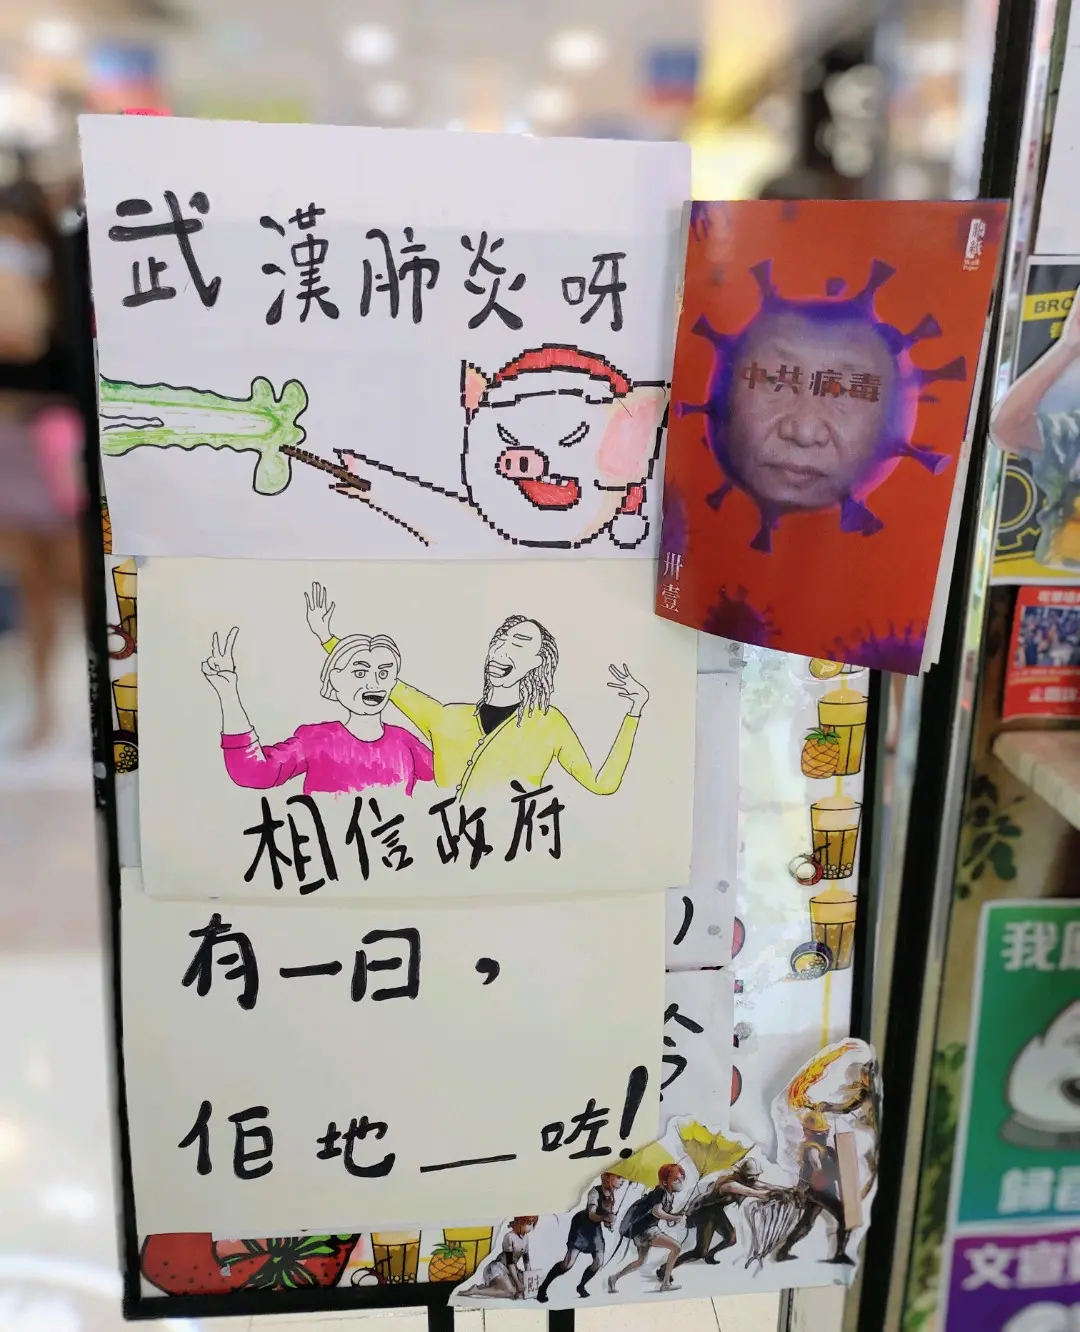 武漢肺炎呀
中共病毒
卅壹
相信政府
有一日，
佢地__咗！
BRO
我
歸
文宣